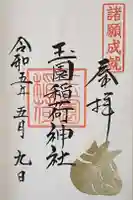 諸願成就
奉拝
玉園稲荷神社
令和五年五月九日